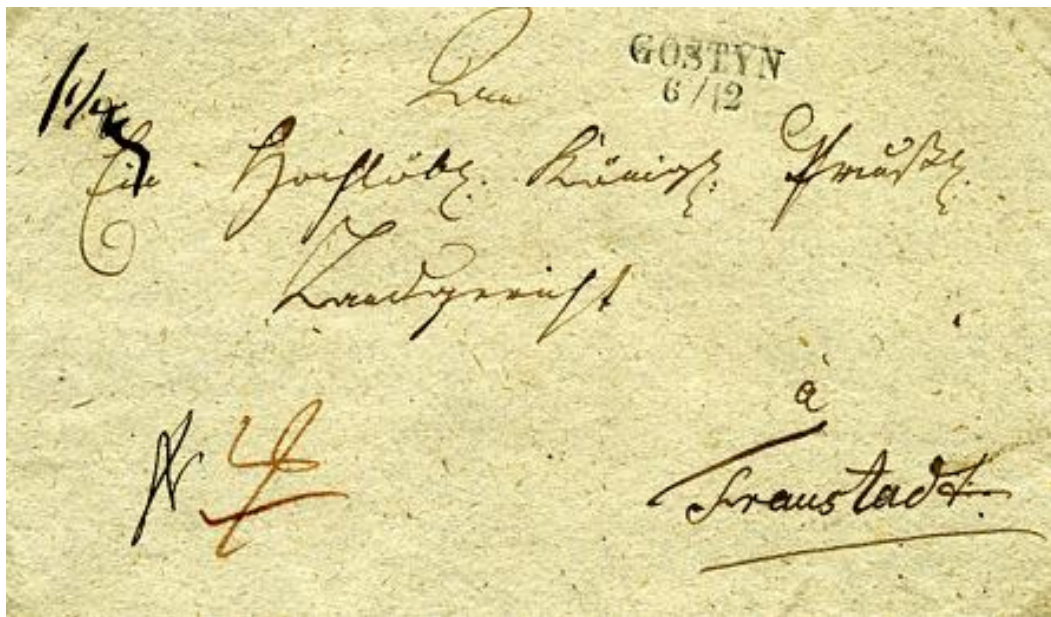 GOSTYN
6/12
An
Ein Hochlöbl. Königl. Preußl.
Landgericht
à
Fraustadt.